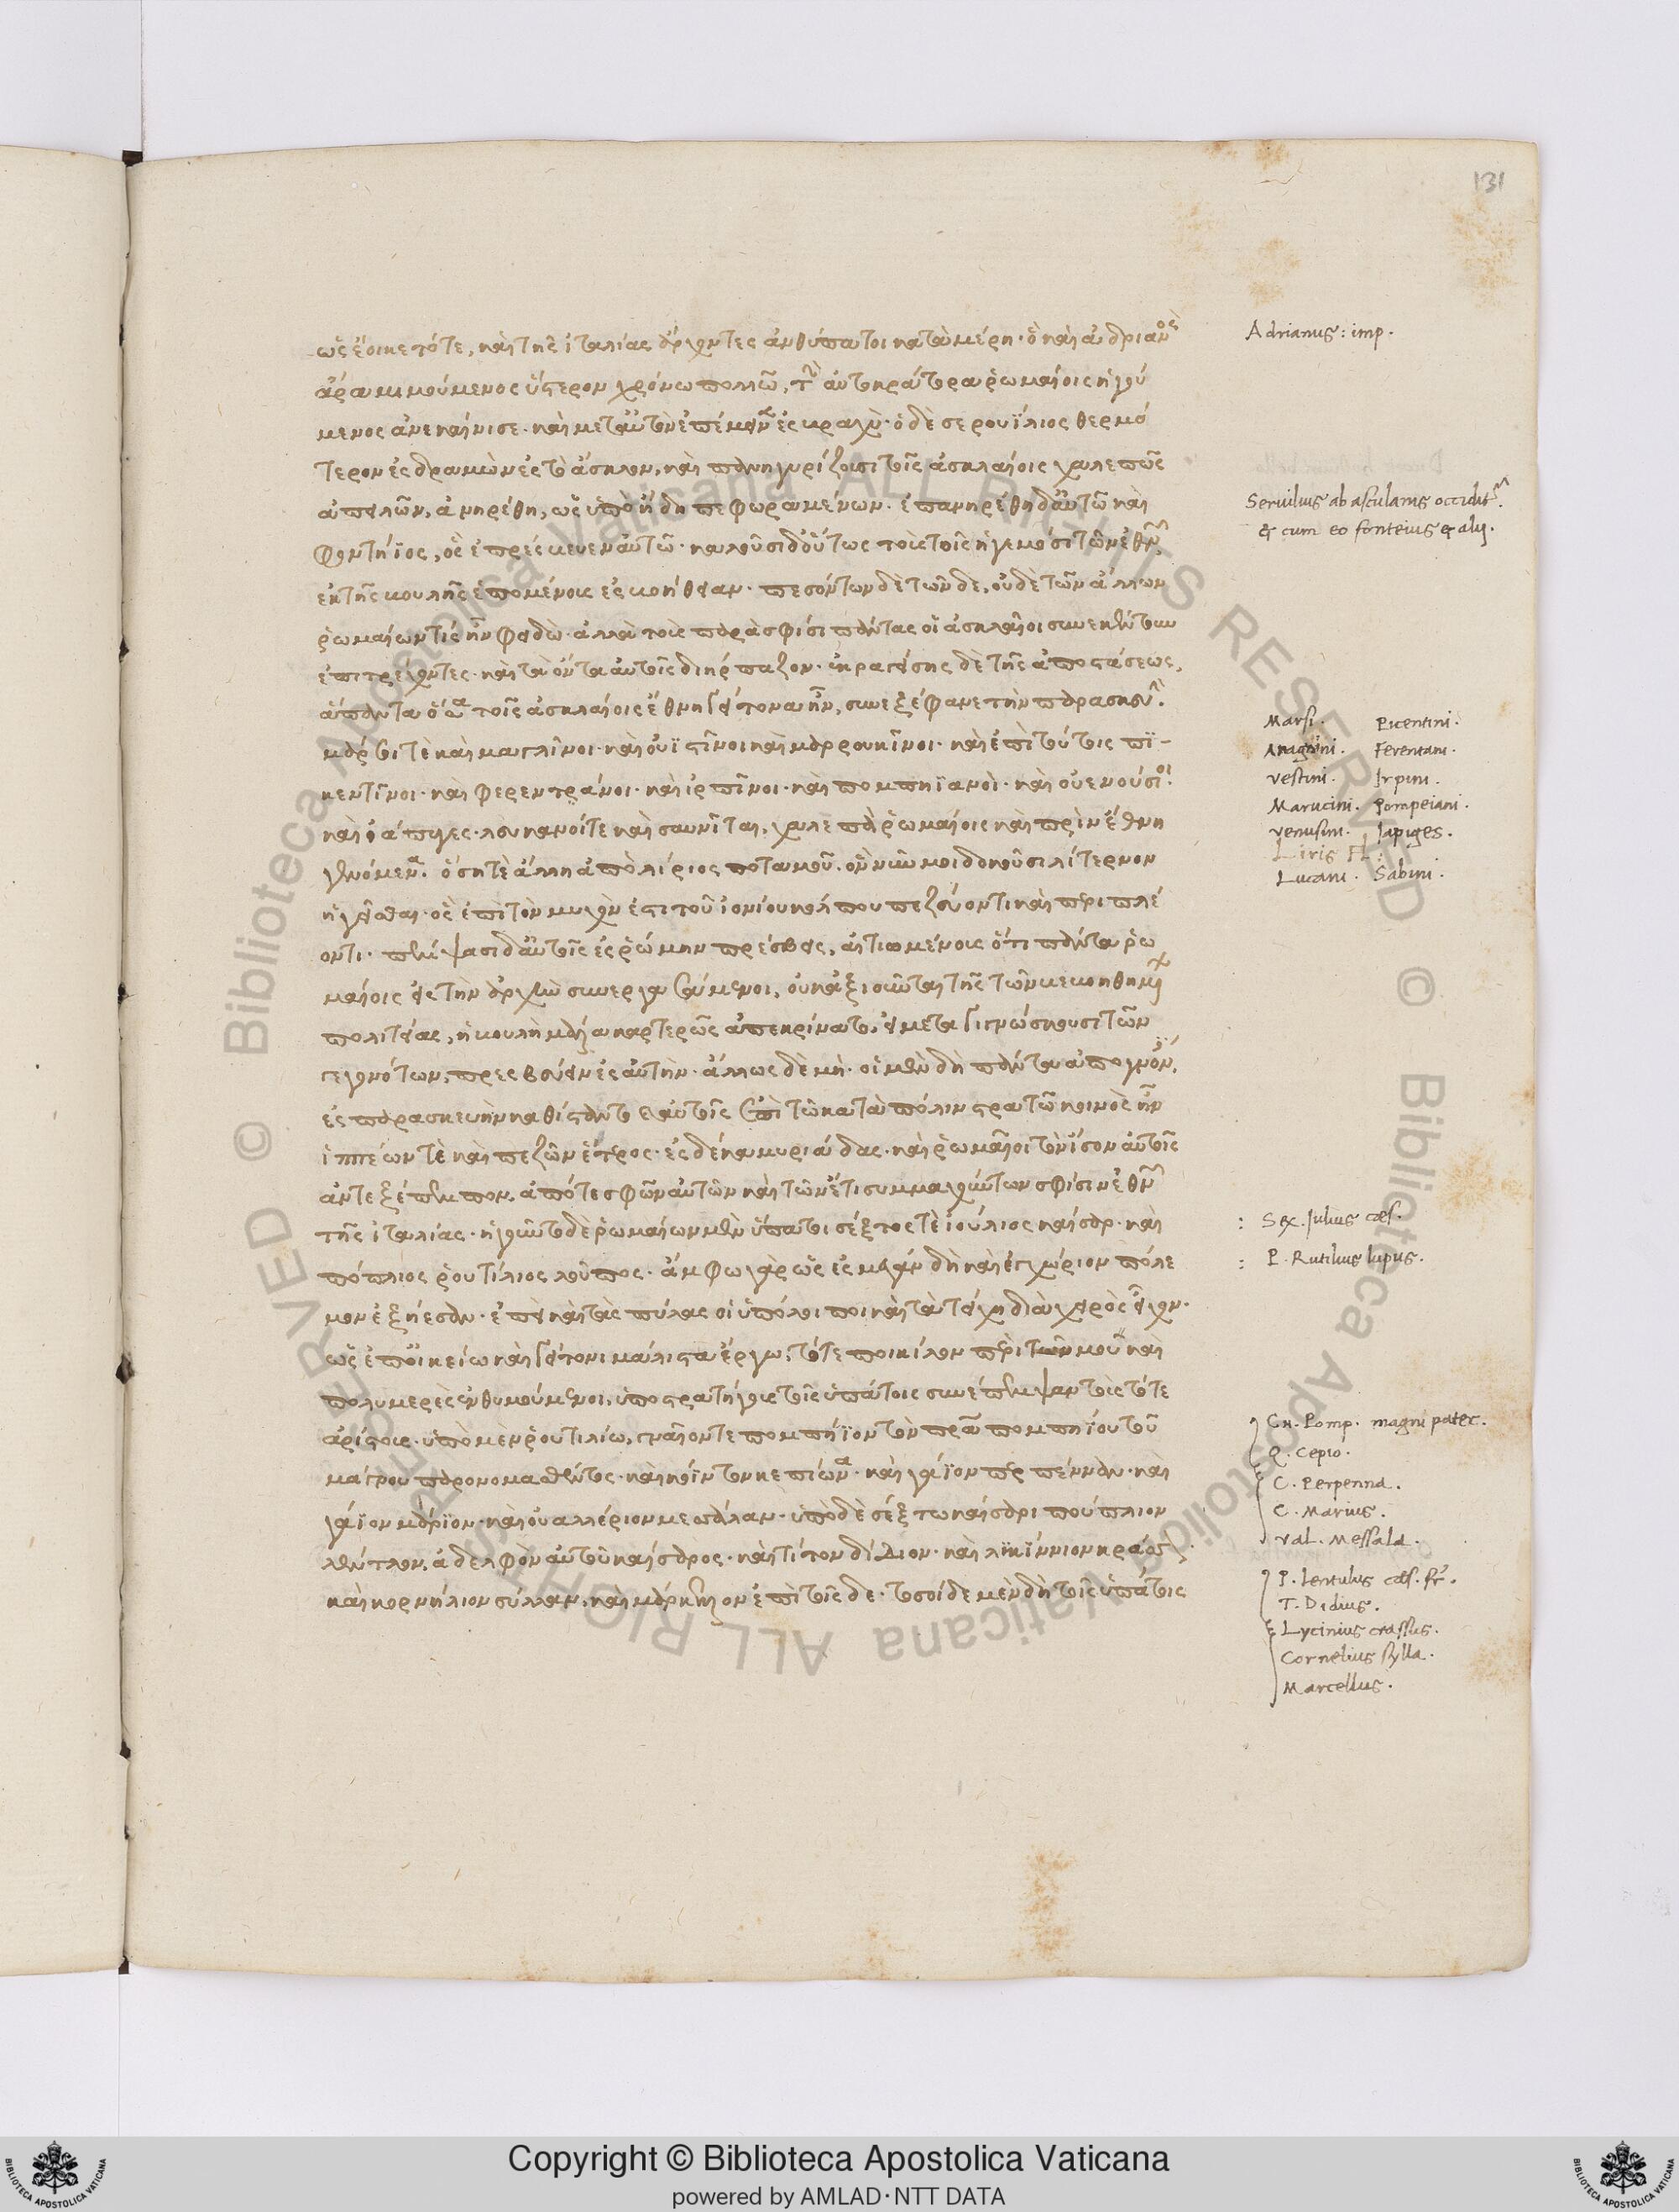 ὡς ἔοικε τότε, καὶ τῆς ἰταλίας ἄρχοντες ἀνθύπατοι κατὰ μέρη· ὃ καὶ ἀδριανὸς
ἄρα μιμούμενος ὕστερον χρόνω πολλῶ, τὴν αὐτοκράτορα ῥωμαίοις ἡγού
μενος ἀνεκαίνισε· καὶ μετ' αὐτὸν ἐπέμεινεν ἐς βραχὺ· ὁ δὲ σερουΐλιος θερμό
τερον ἐςδραμὼν ἐς τὸ ἄσκλον, καὶ πανηγυρίζουσι τοῖς ἀσκλαίοις χαλεπῶς
ἀπειλῶν, ἀνηρέθη, ὡς ὑπὸ ἤδη πεφωραμένων· ἐπανηρέθη δ' αὐτῶ καὶ
φοντήϊος, ὃς ἐπρέσβευεν αὐτῶ· καλοῦσι δ' οὕτως τοὺς τοῖς ἡγεμόσι τῶν ἐθνῶν
ἐκ τῆς βουλῆς ἑπομένους ἐς βοήθειαν· πεσόντων δὲ τῶνδε, οὐδὲ τῶν ἄλλων
ῥωμαίων τίς ἦν φειδὼ· ἀλλὰ τοὺς παρὰ σφίσι πάντας οἱ ἀσκλαῖοι συνεκέντουν
ἐπιτρέχοντες· καὶ τὰ ὄντα αὐτοῖς διήρπαζον· ἐκραγείσης δὲ τῆς ἀποστάσεως,
ἅπαντα ὅσα τοῖς ἀσκλαίοις ἔθνη γείτονα ἦν, συνεξέφαινε τὴν παρασκευήν·
μάρσοι τὲ καὶ μαιγλῖνοι· καὶ οὐϊστῖνοι καὶ μαρρουκῖνοι· καὶ ἐπὶ τούτοις πϊ-
κεντῖνοι· καὶ φερεντράνοι· καὶ ἱρπῖνοι· καὶ πομπηϊανοὶ· καὶ οὐενούσιοι·
καὶ ἰάπυγες· λευκανοί τε καὶ σαυνῖται, χαλεπὰ ῥωμαίοις καὶ πρὶν ἔθνη
γενόμενα· ὅση τὲ ἄλλη ἀπὸ λίριος ποταμοῦ, ὃν νῦν μοι δοκοῦσι λίτερνον
ἡγεῖσθαι· ὃς ἐπὶ τὸν μυχὸν ἐστι τοῦ ἰονίου κόλπου πεζεύοντι καὶ περιπλέ
οντι· πέμψασι δ' αὐτοῖς ἐς ῥώμην πρέσβεις, αἰτιωμένοις ὅτι πάντα ῥω
μαίοις εἰς τὴν ἀρχὴν συνεργασάμενοι, οὐκ ἀξιοῦνται τῆς τῶν βεβοηθημένων
πολιτείας, ἡ βουλὴ μάλα καρτερῶς ἀπεκρίνατο, εἰ μεταγιγνώσκουσι τῶν
γεγονότων, πρεσβεύειν ἐς αὐτὴν· ἄλλως δὲ μή· οἱ μὲν δὴ πάντα ἀπογνόντες,
ἐς παρασκευὴν καθίσταντο· καὶ αὐτοῖς ἐπὶ τῶ κατὰ πόλιν στρατῶ κοινὸς ἦν
ἱππέων τὲ καὶ πεζῶν ἕτερος· ἐς δέκα μυριάδας· καὶ ῥωμαῖοι τὸν ἴσον αὐτοῖς
ἀντεξέπεμπον, ἀπό τε σφῶν αὐτῶν καὶ τῶν ἔτι συμμαχούντων σφίσιν ἐθνῶν
τῆς ἰταλίας· ἡγοῦντο δὲ ῥωμαίων μὲν ὕπατοι σέξτος τὲ ἰούλιος καίσαρ· καὶ
πόπλιος ῥουτίλιος λοῦπος· ἄμφω γὰρ ὡς ἐς μέγαν δὴ καὶ ἐγχώριον πόλε
μον ἐξήεσαν· ἐπεὶ καὶ τὰς πύλας οἱ ὑπόλοιποι καὶ τὰ τείχη διὰ χειρὸς εἶχον·
ὡς ἐπ' οἰκείω καὶ γείτονι μάλιστα ἔργω, τό τε ποικίλον πέρι τῶν μοῦ καὶ
πολυμερὲς ἐνθυμούμενοι, ὑποστρατήγους τοῖς ὑπάτοις συνέπεμψαν τοὺς τότε
ἀρίστους· ὑπὸ μὲν ῥουτιλίω, γναῖόν τε πομπήϊον τὸν πατέρα πομπηΐου τοῦ
μάγνου παρονομασθέντος· καὶ κόϊντον κεπίωνα· καὶ γάϊον πέρπενναν· καὶ
γάϊον μάριον· καὶ οὐαλλέριον μεσάλαν· ὑπὸ δὲ σέξτω καίσαρι πούπλιον
λέντλον, ἀδελφὸν αὐτοῦ καίσαρος· καὶ τίτον δίδιον· καὶ λϊκίννιον κράσσον·
καὶ κορνήλιον σύλλαν, καὶ μάρκελλον ἐπὶ τοῖς δε· τοσοίδε μὲν δὴ τοῖς ὑπάτοις
131
Adrianus: imp.
Seruilius ab asculanis occidit.
& cum eo fonteius & alij.
Marsi. Picentini.
Ferentani.
vestini. Irpini.
Marucini. Pompeiani.
venusini. Iapiges.
Liris fl:
Lucani. Sabini.
: Sex. Iulius cæs.
: P. Rutilius lupus.
Cn. Pomp. magni pater.
Q. Cepio.
C. Perpenna.
C. Marius.
val. Messala.
P. lentulus cæs. fr.
T. Didius.
Lycinius crassus.
Cornelius sylla.
Marcellus.
Copyright © Biblioteca Apostolica Vaticana
powered by AMLAD·NTT DATA